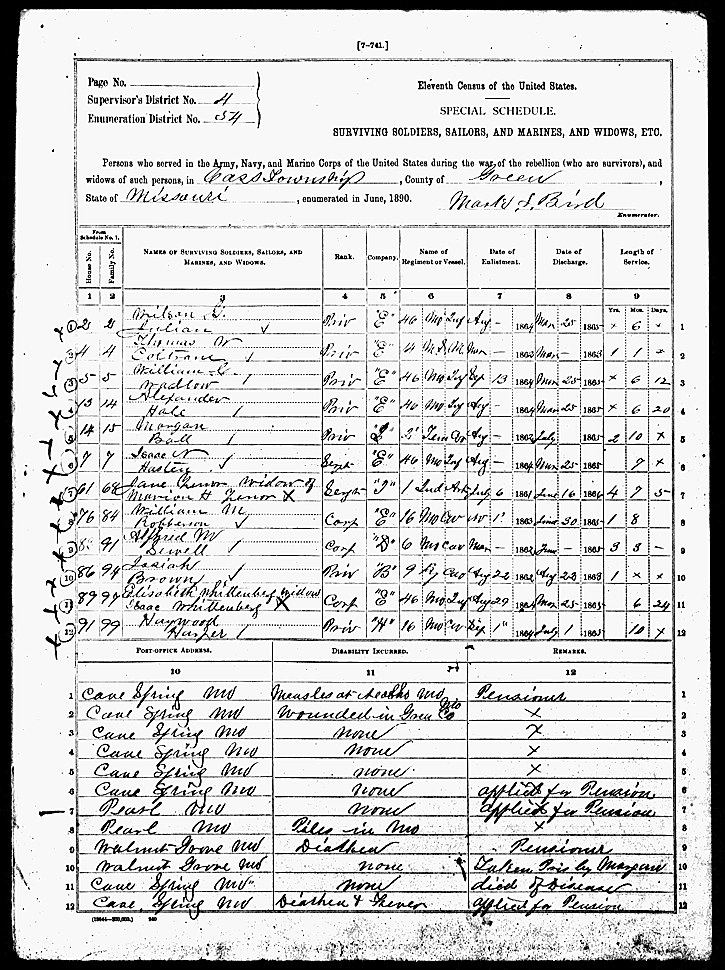 [7-741.]
Page No.
Supervisor's District No. 4
Enumeration District No. 54
Eleventh Census of the United States.
SPECIAL SCHEDULE.
SURVIVING SOLDIERS, SAILORS, AND MARINES, AND WIDOWS, ETC.
Persons who served in the Army, Navy, and Marine Corps of the United States during the war of the rebellion (who are survivors), and
widows of such persons, in Cass Township, County of Green,
State of Missouri, enumerated in June, 1890. Bird
Enumerator.
From Schedule No. 1.
House No. Family No. NAMES OF SURVIVING SOLDIERS, SAILORS, AND MARINES, AND WIDOWS. Rank. Company. Name of Regiment or Vessel. Date of Enlistment. Date of Discharge. Length of Service.
1 2 3 4 5 6 7 8 9
Yrs. Mos. Days.
1 2 2 Wilson Julian Priv "E" 46 Mo Inf Aug - 1864 Mar 25 1865 x 6 x 1
2 4 4 Thomas W Coltrane Priv "E" 4 Mar - 1862 Mar - 1863 1 1 x 2
3 5 5 William Wadlow Priv "E" 46 Mo Inf Sep 13 1864 Mar 25 1865 x 6 12 3
4 13 14 Alexander Hale Priv "E" 46 Mo Inf Aug 1864 Mar 25 1865 x 6 20 4
5 14 15 Morgan Ball Priv Aug - 1862 July 1865 2 10 x 5
6 7 7 Isaac N Hasten Sergt "E" 46 Mo Inf Aug - 1864 Mar 25 1865 7 x 6
7 61 68 Jane Tenor Widow of Marion H Tenor X Sergt 1 Ind July 6 1861 June 16 1866 4 7 5 7
8 76 84 William M Robberson Corp "E" 16 Mo Cav 1 1863 June 30 1865 1 8 8
9 91 Alfred M Sewell Corp "D" 6 Mo Cav Mar - 1862 June - 1865 3 3 - 9
10 86 94 Josiah Brown Priv "B" 9 Ky Cav Aug 22 1862 Aug 22 1863 1 x x 10
11 89 97 Elisabeth Whittenberg Widow Isaac Whittenberg X Corp "E" 46 Mo Inf Aug 29 1864 Mar 25 1865 6 24 11
12 91 99 Haywood Harper Priv "H" 16 Mo Cav Sep 1 1864 July 1 1865 10 x 12
POST-OFFICE ADDRESS. DISABILITY INCURRED. REMARKS.
10 11 12
1 Cave Spring Mo Measles at Mo Pensioner 1
2 Cave Spring Mo Wounded in Green Co Mo x 2
3 Cave Spring Mo none x 3
4 Cave Spring Mo none x 4
5 Cave Spring Mo none x 5
6 Cave Spring Mo none applied for Pension 6
7 Pearl Mo none applied for Pension 7
8 Pearl Mo Piles in Mo x 8
9 Walnut Grove Mo Diathea Pensioner 9
10 Walnut Grove Mo none Taken Pris by Morgan 10
11 Cave Spring Mo none died of Disease 11
12 Cave Spring Mo Diathea & Fever applied for Pension 12